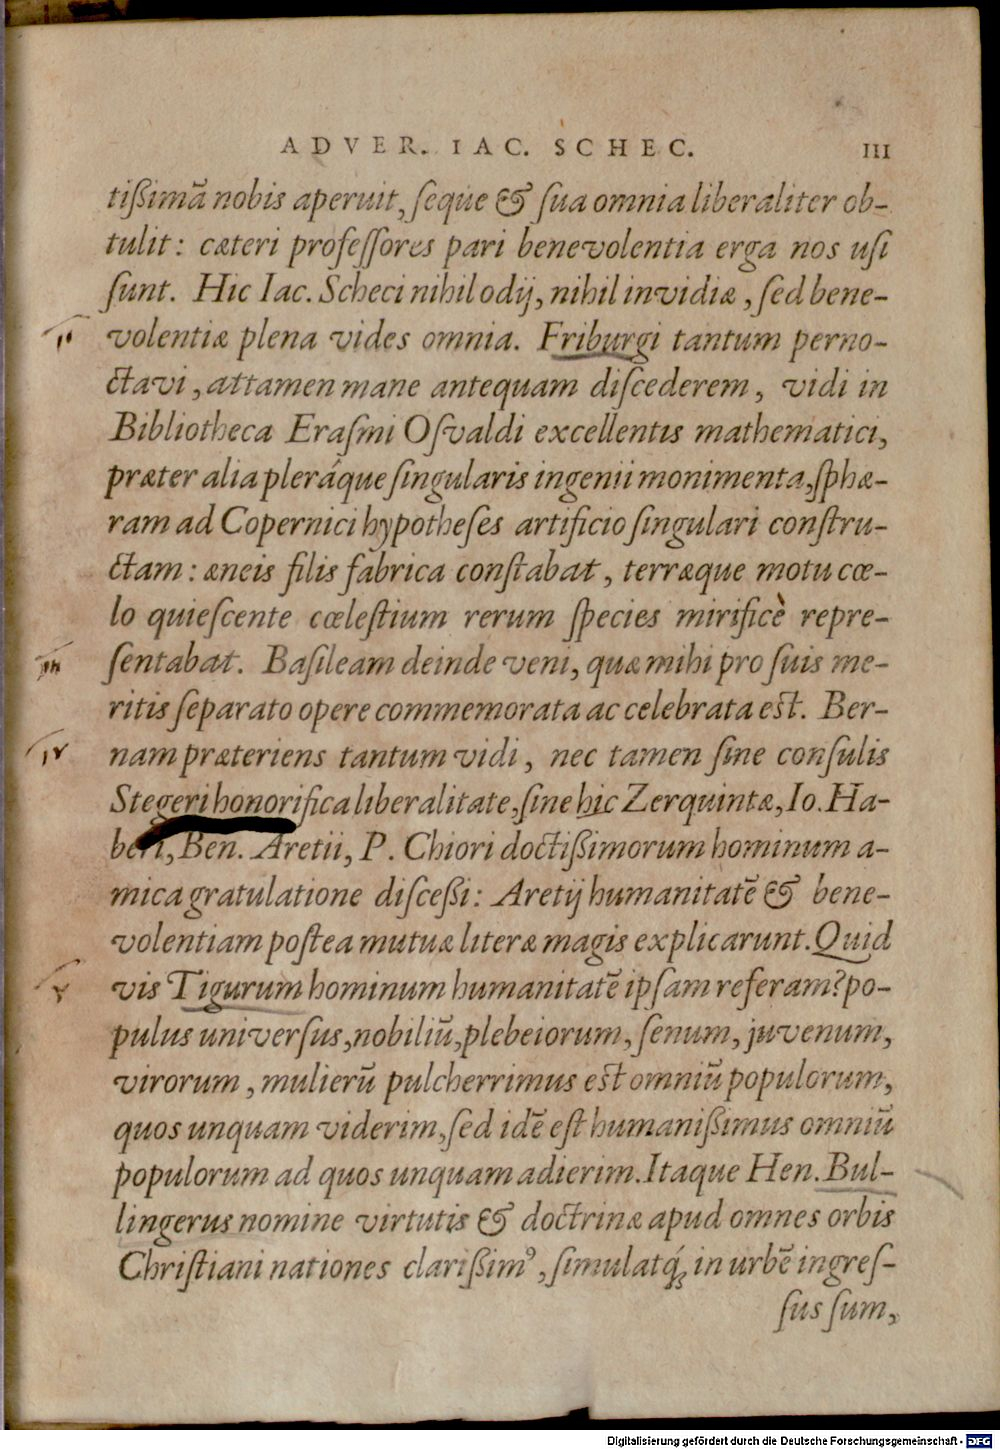 ADVER. IAC. SCHEC. III
tißimã nobis aperuit, seque & sua omnia liberaliter ob-
tulit: cæteri professores pari benevolentia erga nos usi
sunt. Hic Iac. Scheci nihil odij, nihil invidiæ, sed bene-
II volentiæ plena vides omnia. Friburgi tantum perno-
ctavi, attamen mane antequam discederem, vidi in
Bibliotheca Erasmi Osvaldi excellentis mathematici,
præter alia pleráque singularis ingenii monimenta, sphæ-
ram ad Copernici hypotheses artificio singulari constru-
ctam: æneis filis fabrica constabat, terræque motu cœ-
lo quiescente cœlestium rerum species mirificè repre-
III sentabat. Basileam deinde veni, quæ mihi pro suis me-
ritis separato opere commemorata ac celebrata est. Ber-
IV nam præteriens tantum vidi, nec tamen sine consulis
Stegeri honorifica liberalitate, sine hic Zerquintæ, Io. Ha-
beri, Ben. Aretii, P. Chiori doctißimorum hominum a-
mica gratulatione disceßi: Aretij humanitatẽ & bene-
volentiam postea mutuæ literæ magis explicarunt. Quid
V vis Tigurum hominum humanitatẽ ipsam referam? po-
pulus universus, nobiliũ, plebeiorum, senum, juvenum,
virorum, mulierũ pulcherrimus est omniũ populorum,
quos unquam viderim, sed idẽ est humanißimus omniũ
populorum ad quos unquam adierim. Itaque Hen. Bul-
lingerus nomine virtutis & doctrinæ apud omnes orbis
Christiani nationes clarißimꝰ, simulatq́; in urbẽ ingres-
sus sum,
Digitalisierung gefördert durch die Deutsche Forschungsgemeinschaft - DFG